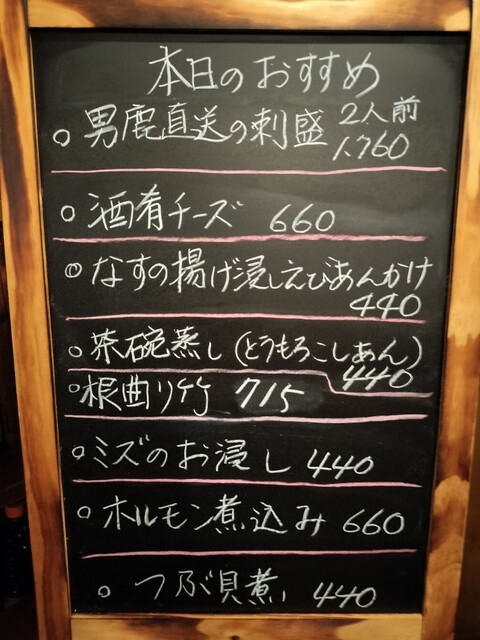 本日のおすすめ
○ 男鹿直送の刺盛 2人前
1,760
○ 酒肴チーズ 660
○ なすの揚げ浸しえびあんかけ
440
○ 茶碗蒸し(とうもろこしあん)
440
○ 根曲り竹 715
○ ミズのお浸し 440
○ ホルモン煮込み 660
○ つぶ貝煮 440